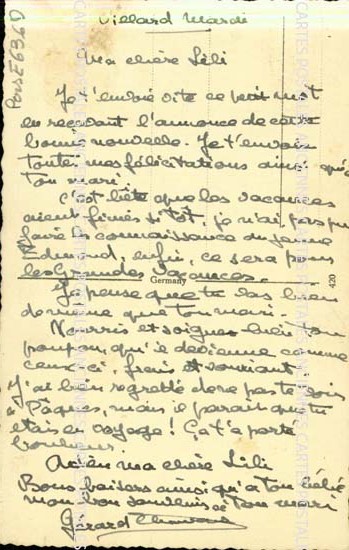 Villard Mardi
Ma chère Lili
Je t'envoie vite ce petit mot
en recevant l'annonce de cette
bonne nouvelle. Je t'envoie
toutes mes félicitations ainsi qu'à
ton mari.
C'est bête que les vacances
aient finies si tôt, je n'ai pas pu
faire la connaissance du jeune
Edmond, enfin, ce sera pour
les Grandes Vacances.
Germany
420
Je pense que tu vas bien
de même que ton mari.
Nourris et soigne bien ton
poupon, qu'il devienne comme
ceux-ci, frais et souriant.
J'ai bien regretté de ne pas te voir
à Pâques, mais il paraît que tu
étais en voyage! Ça t'a porté
bonheur.
ma chère Lili
Bons baisers ainsi qu'a ton bébé
mon bon souvenir à ton mari
Gérard
CARTES POSTALES ANCIENNES